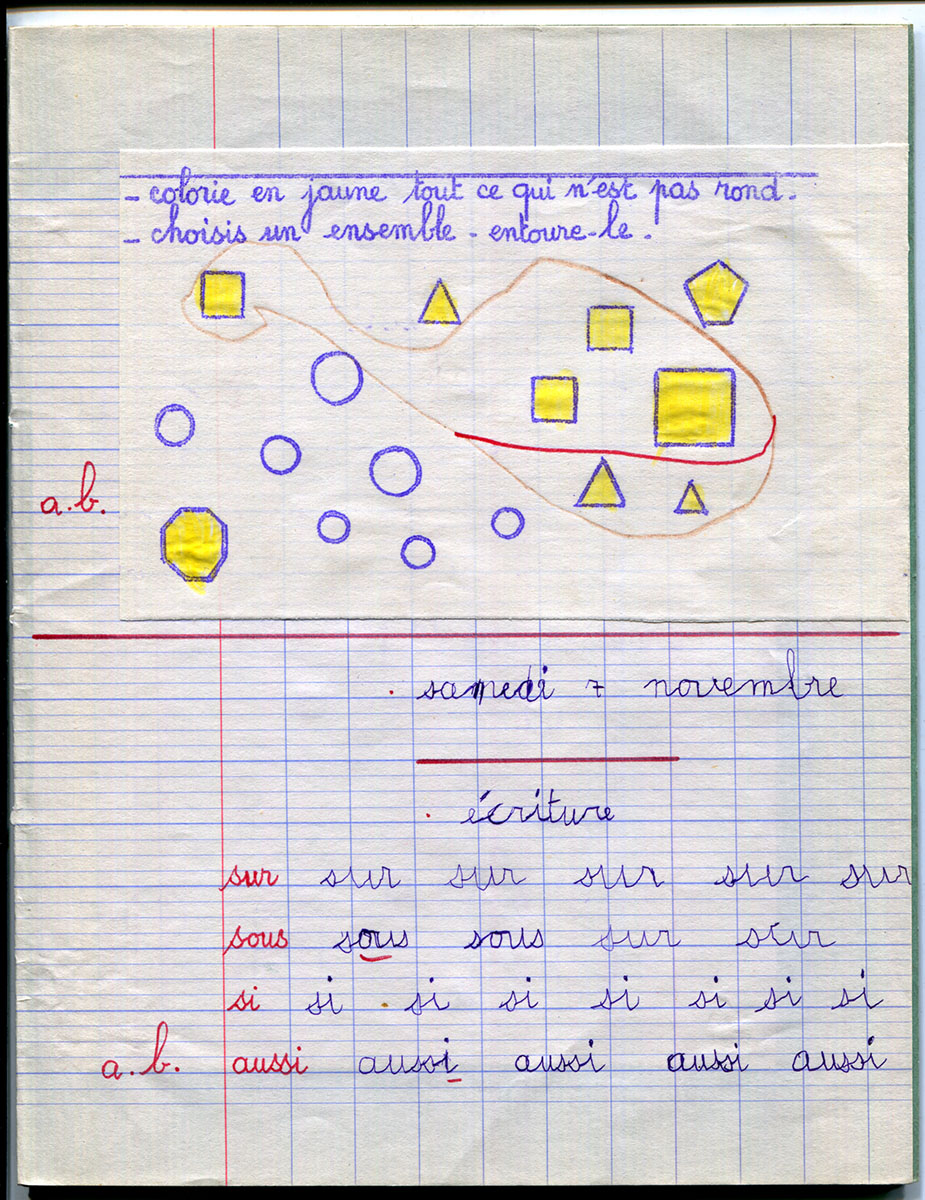 - colorie en jaune tout ce qui n'est pas rond.
- choisis un ensemble - entoure-le.
a.b.
samedi 7 novembre
écriture
sur sur sur sur sur sur
sous sous sous sur sur
si si si si si si si si
a.b. aussi aussi aussi aussi aussi